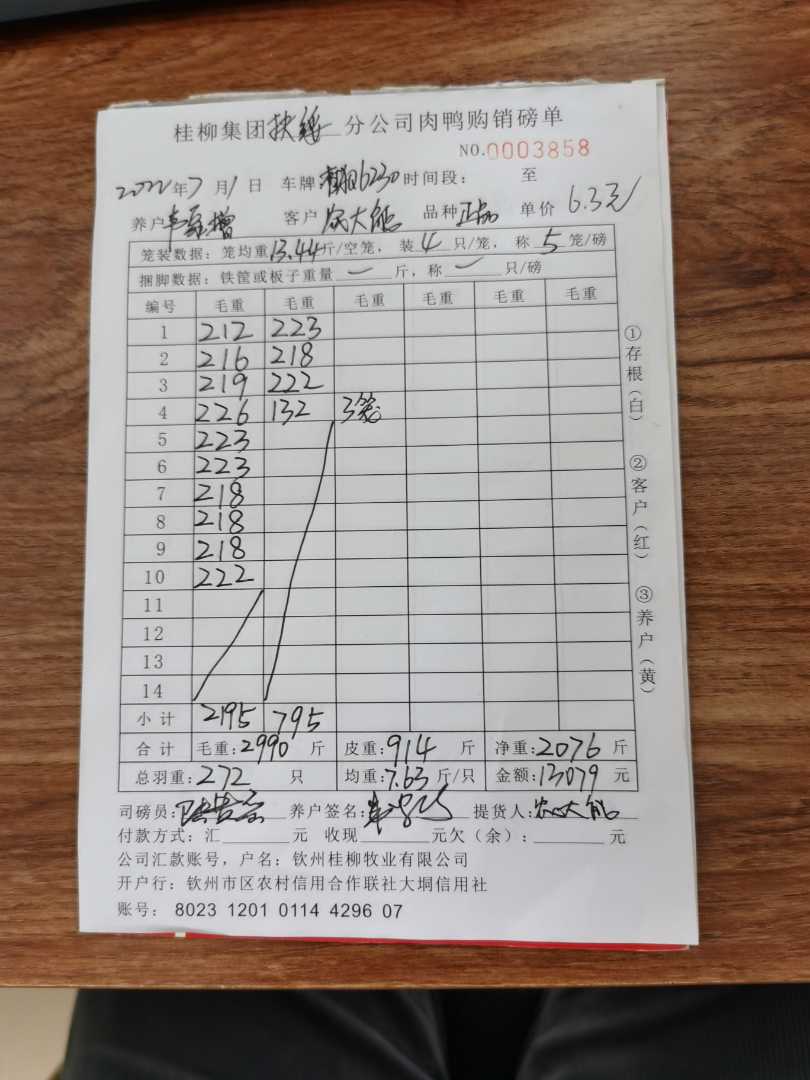 桂柳集团扶绥分公司肉鸭购销磅单
NO.0003858
2022年7月1日 车牌 6230时间段： 至
养户 增 客户 农大能 品种 正品 单价 6.3元
笼装数据：笼均重13.44斤/空笼，装4只/笼，称5笼/磅
捆脚数据：铁筐或板子重量 一 斤，称 一 只/磅
编号 毛重 毛重 毛重 毛重 毛重 毛重
1 212 223
2 216 218
3 219 222
4 226 132 3笼
5 223
6 223
7 218
8 218
9 218
10 222
11
12
13
14
小计 2195 795
合计 毛重：2990斤 皮重：914斤 净重：2076斤
总羽重：272只 均重：7.63斤/只 金额：13079元
司磅员： 养户签名： 提货人：农大能
付款方式：汇 元 收现 元欠（余）： 元
公司汇款账号，户名：钦州桂柳牧业有限公司
开户行：钦州市区农村信用合作联社大垌信用社
账号： 8023 1201 0114 4296 07
①存根（白） ②客户（红） ③养户（黄）